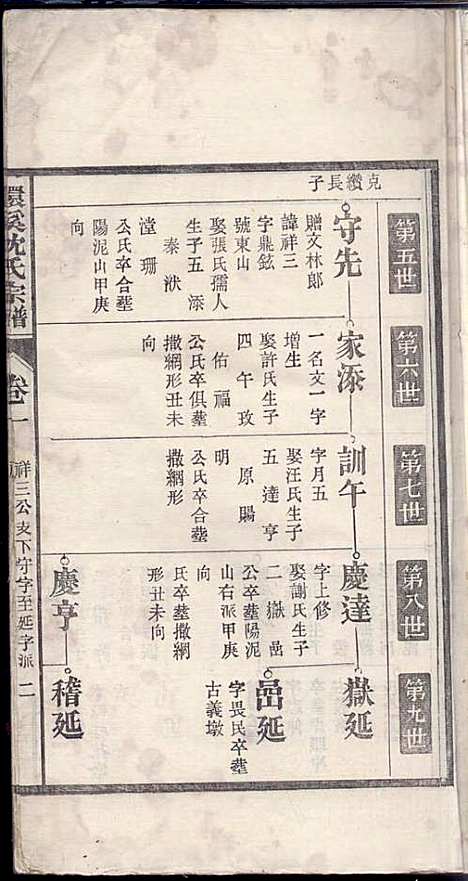 第五世
第六世
第七世
第八世
第九世
克纘長子
守先
贈文林郎
諱祥三
字鼎鉉
號東山
娶張氏孺人
生子五 添
泰 洑
瀅 珊
公氏卒合塟
陽泥山甲庚
向
家添
一名文一字
增生
娶許氏生子
四 午 玫
佑 福
公氏卒俱塟
撒網形丑未
向
訓午
字月五
娶汪氏生子
五 達 亨
原 賜
明
公氏卒合塟
撒網形
慶達
字上修
娶謝氏生子
二 嶽 嵒
公卒塟陽泥
山右派甲庚
向
氏卒塟撒網
形丑未向
慶亨
嶽延
嵒延
字畏民卒塟
古義墩
稽延
環溪沈氏宗譜
卷一
祥三公支下守字至延字派 二